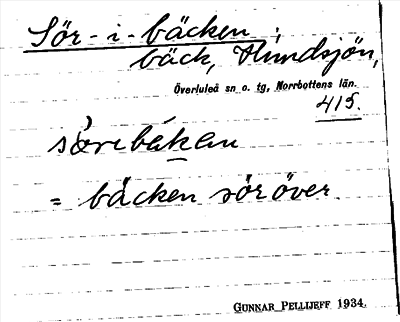 Sör-i-bäcken;
bäck, Hundsjön,
Överluleå sn o. tg, Norrbottens län.
415.
sȯ̀rebäkæn
= bäcken söröver.
GUNNAR PELLIJEFF 1934.